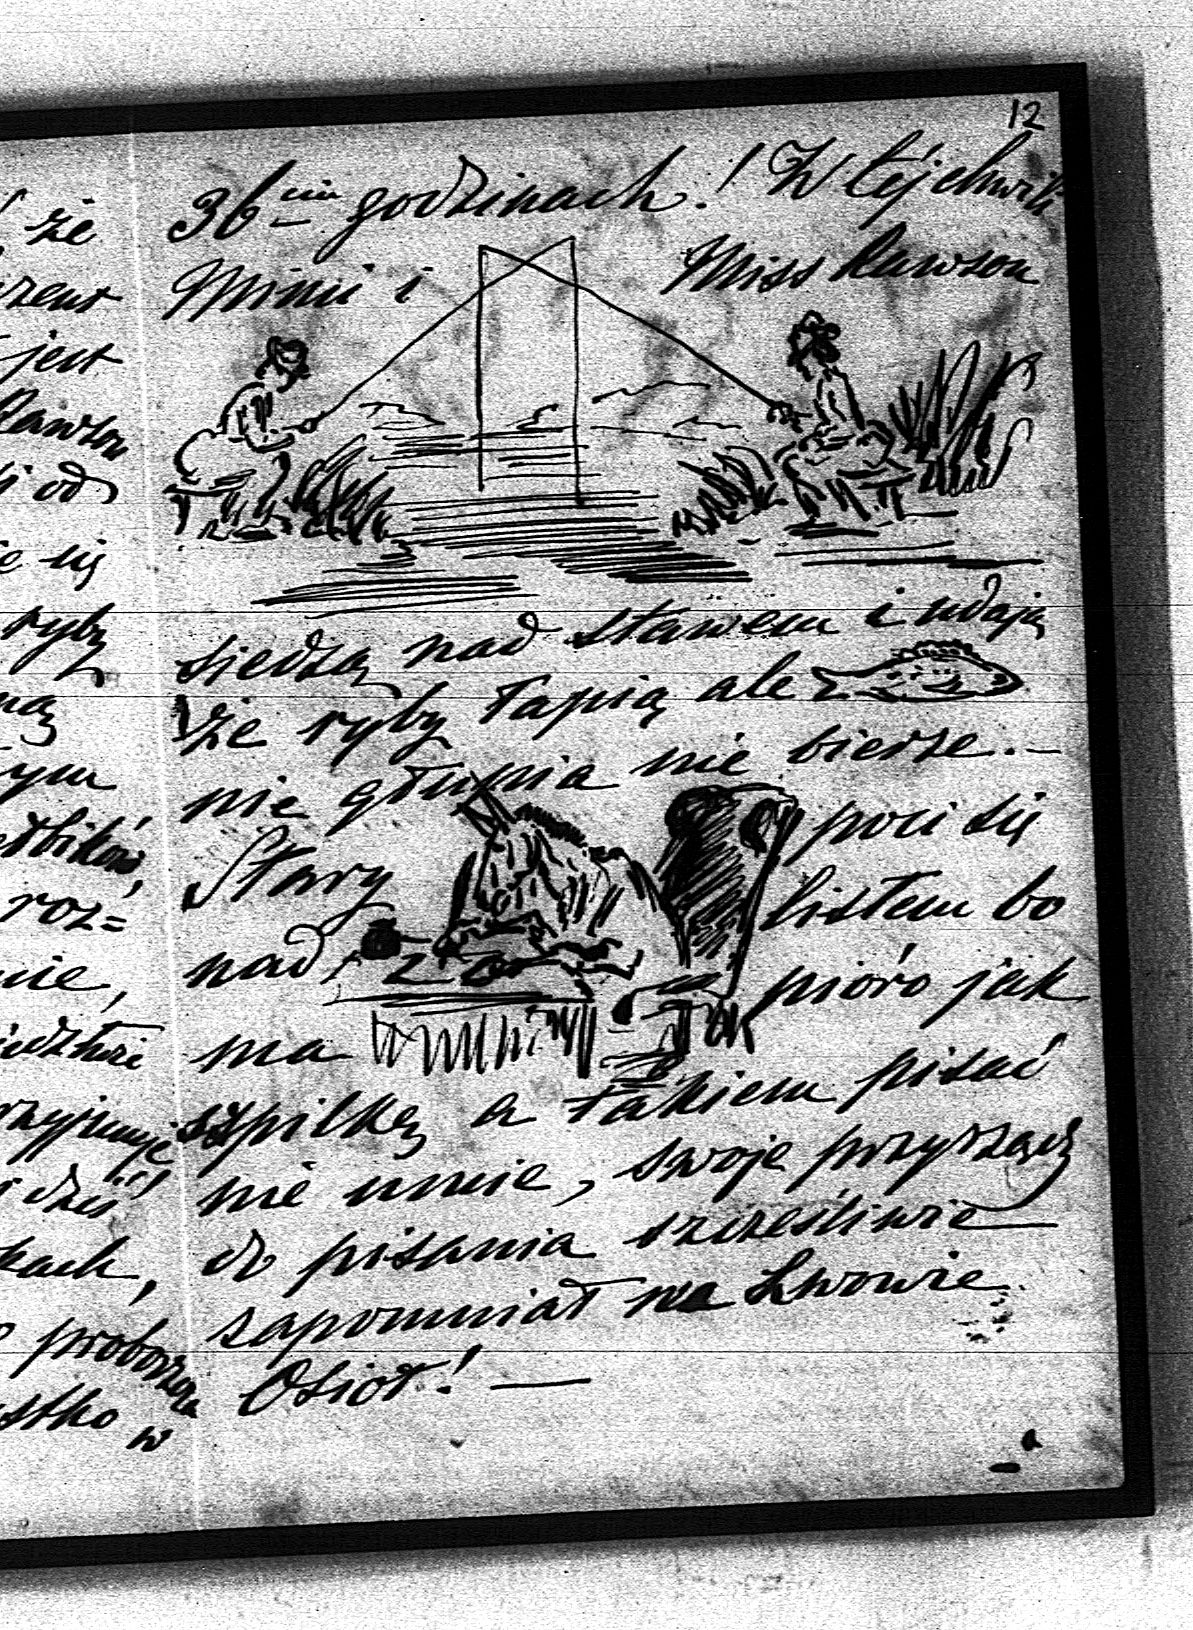 12
że
jest
Rawson
od
się
ryby
roz=
nie,
dziś
kach,
proboszcza
w
36ciu godzinach! W téj chwili
Mimi i Miss Rawson
siedzą nad stawem i udają
że ryby łapią ale
nie głupia nie bierze. —
Stary poci się
nad listem bo
ma pióro jak
szpilkę a takiem pisać
nie umie, swoje przyrządy
do pisania szczęśliwie
zapomniał we Lwowie
Osioł! —